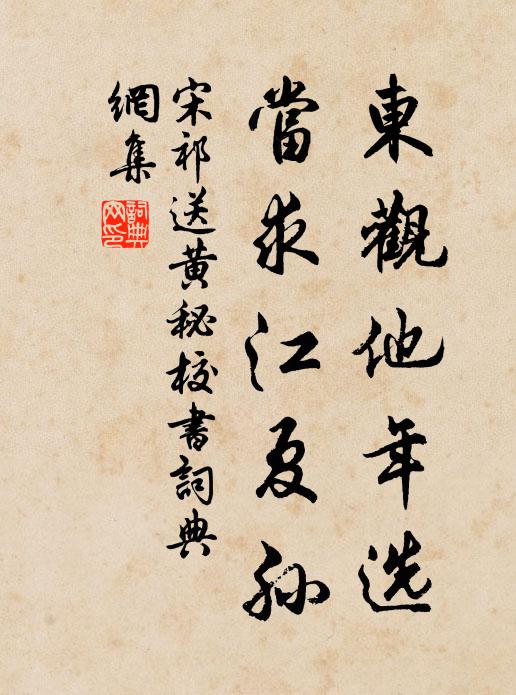 東觀他年选
當求江夏孙
宋祁送黄秘校書詞典
網集
詞典
网印